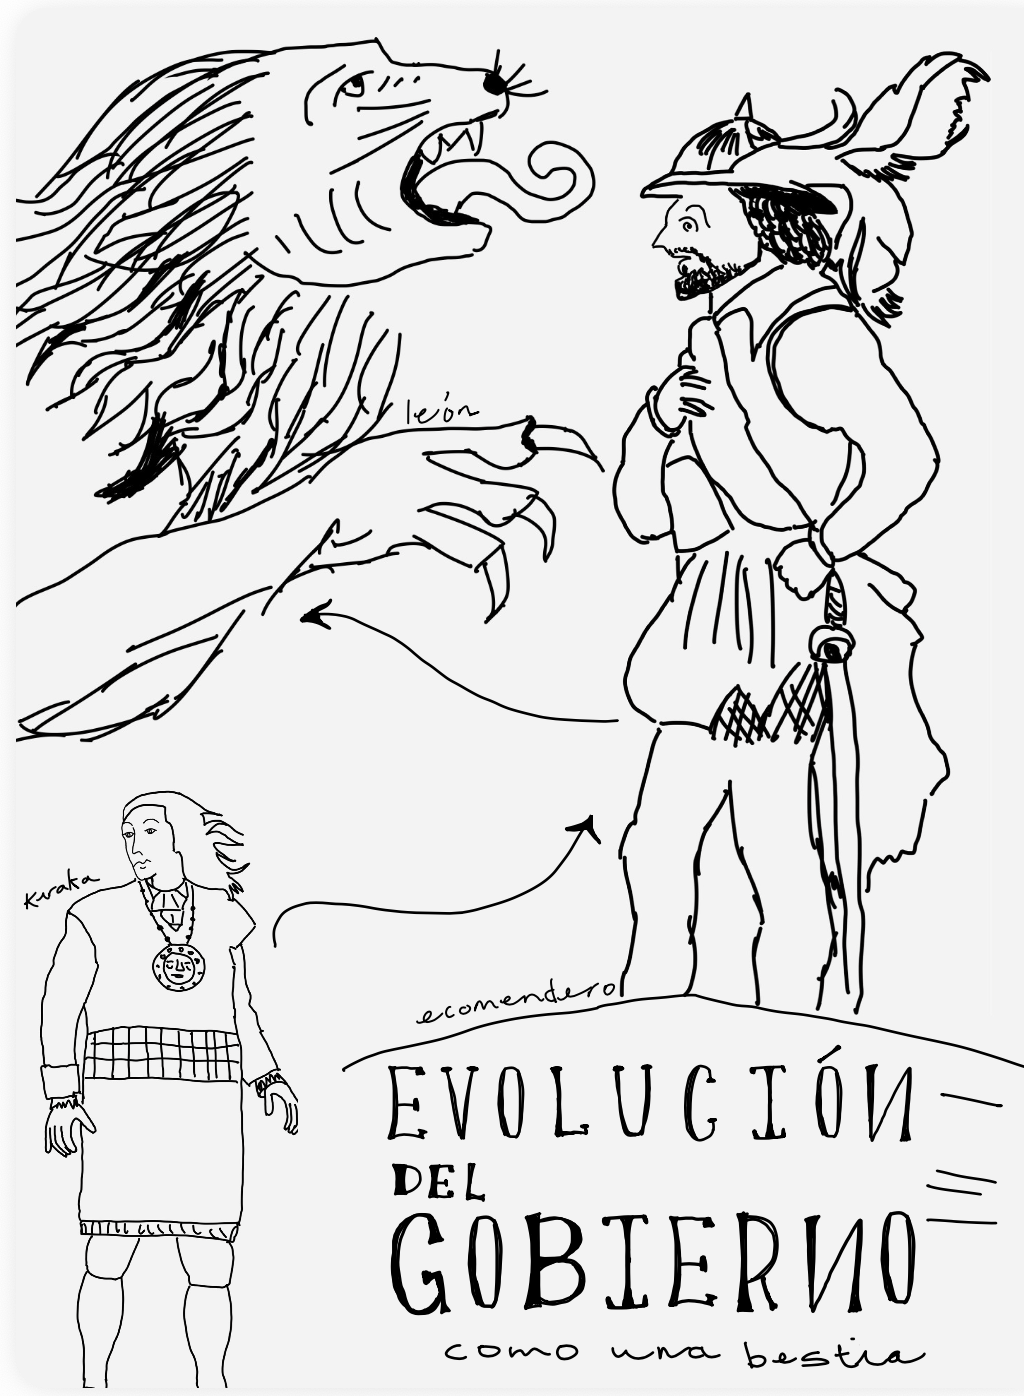 león
Kuraka
ecomendero
EVOLUCIÓN
DEL
GOBIERNO
como una bestia